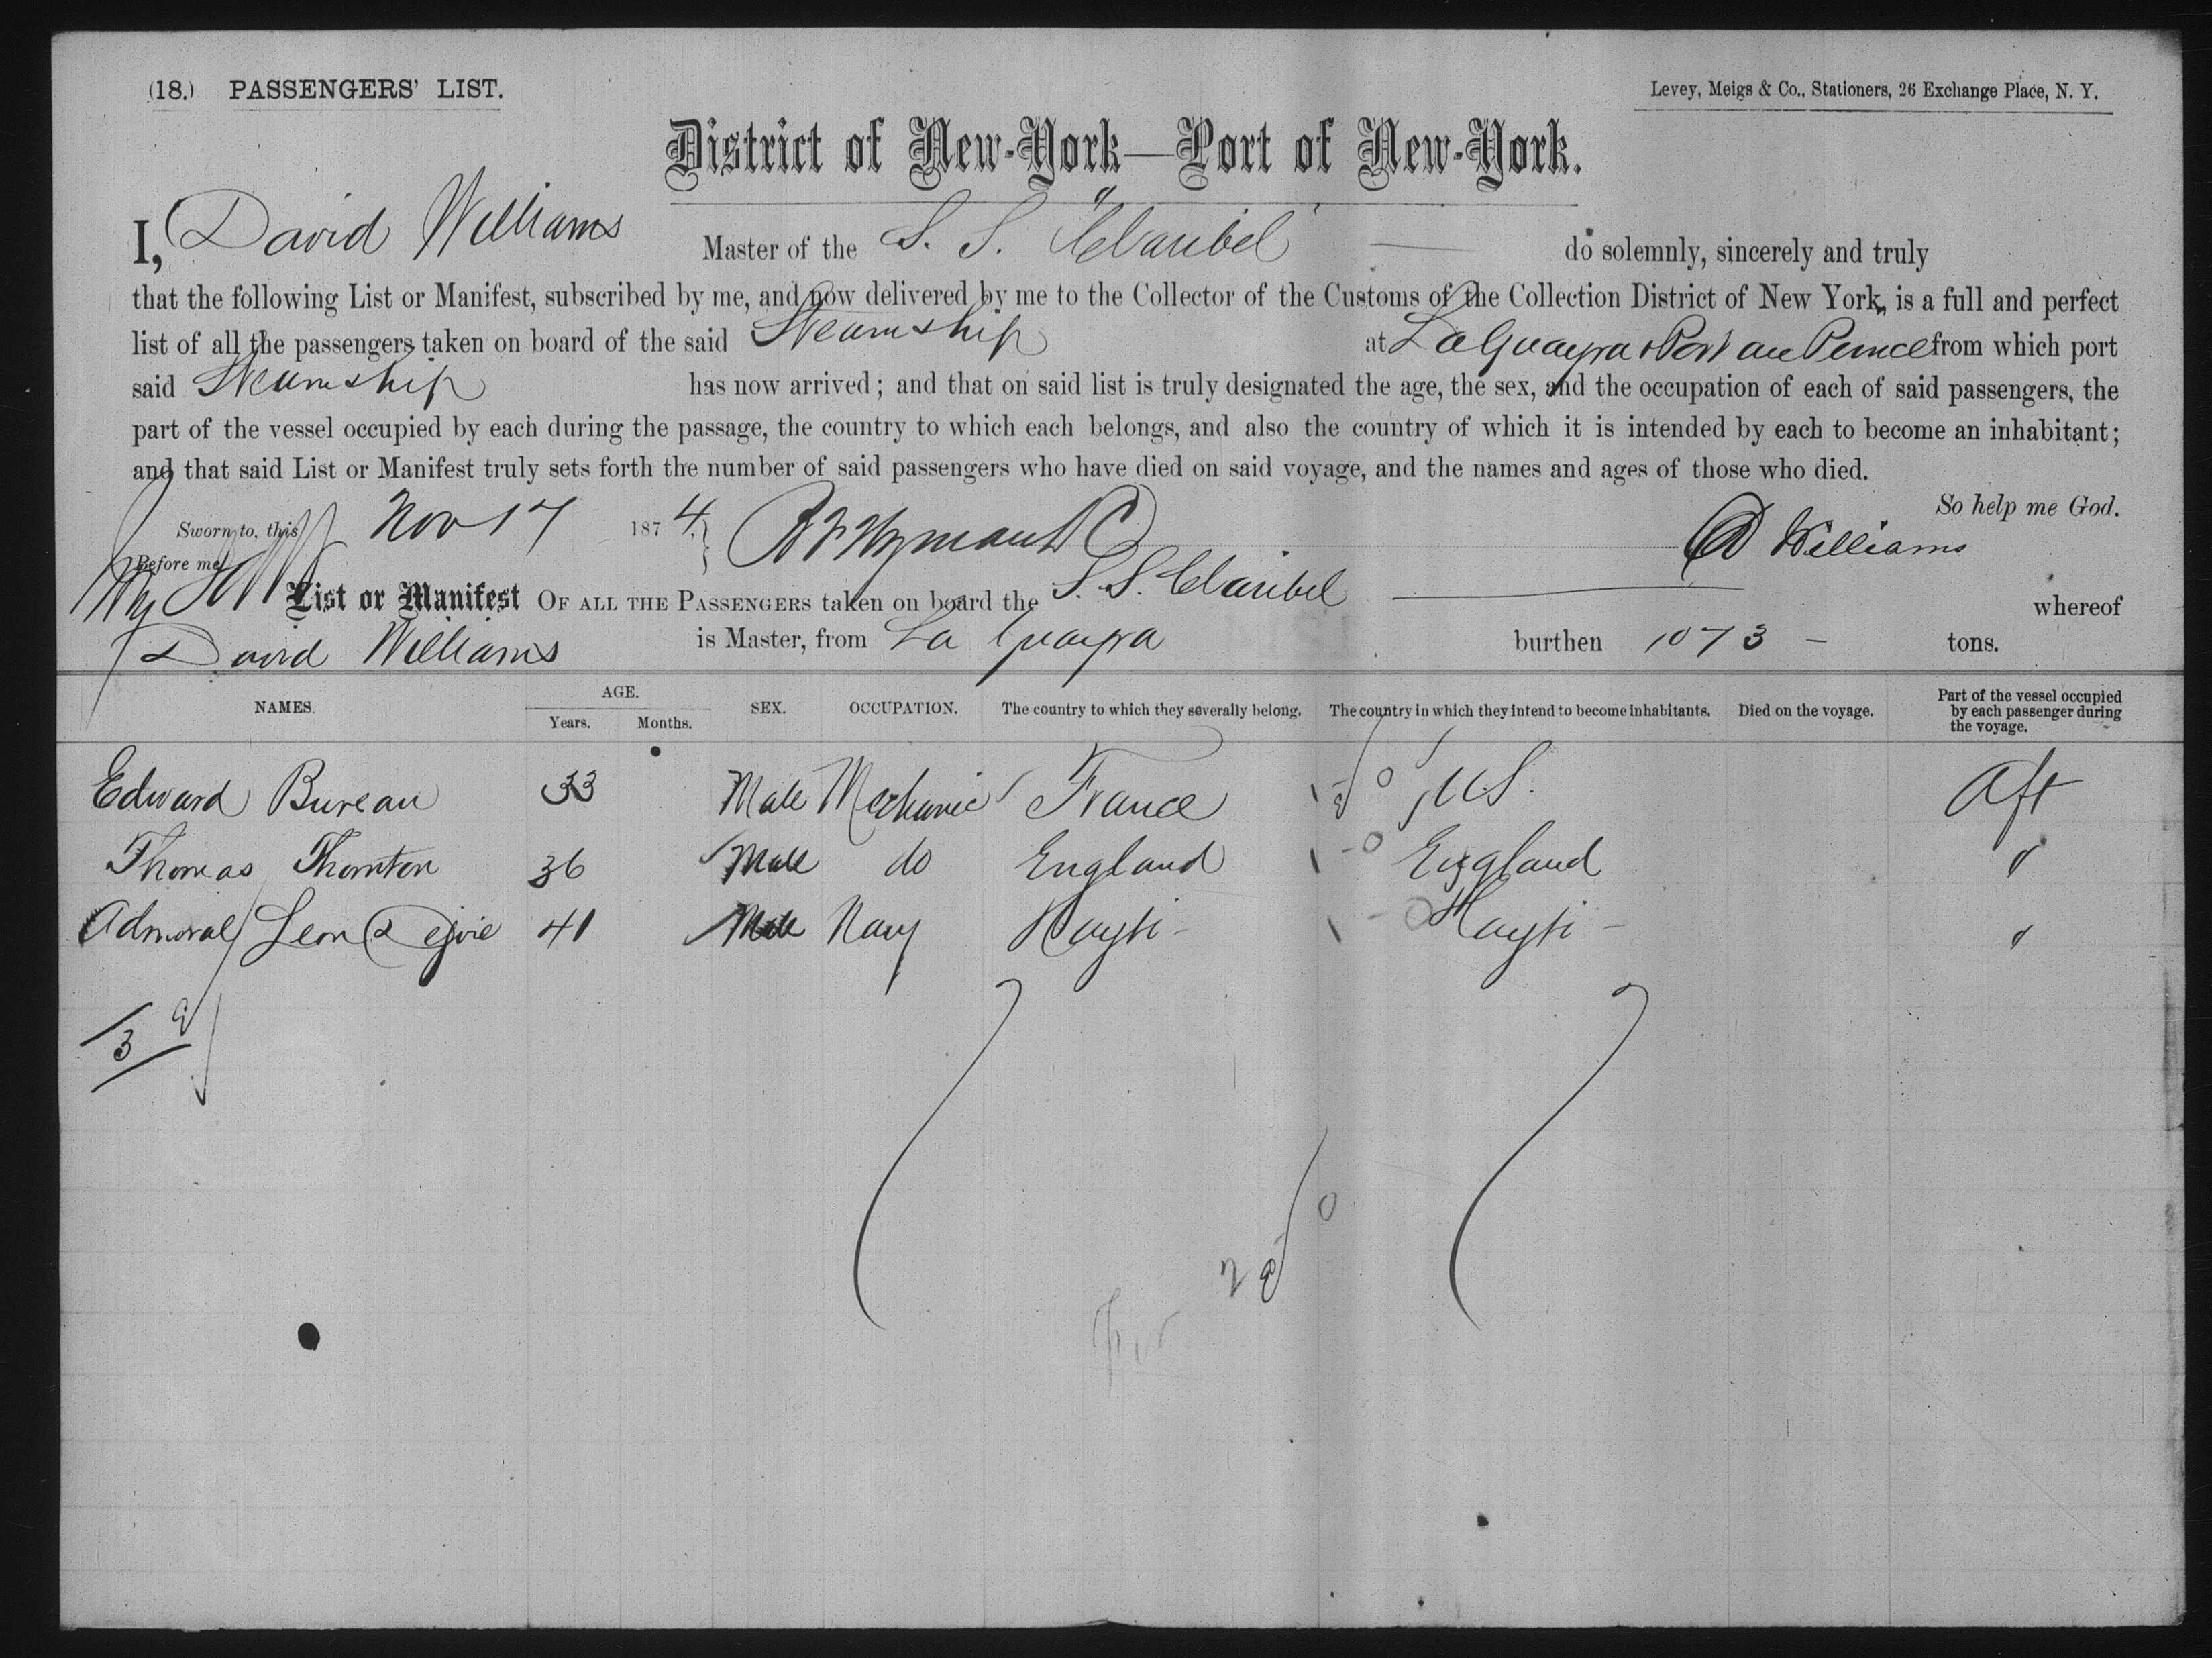 (18.) PASSENGERS' LIST.
Levey, Meigs & Co., Stationers, 26 Exchange Place, N. Y.
District of New-York—Port of New-York.
I, David Williams Master of the S. S. "Claribel" do solemnly, sincerely and truly
that the following List or Manifest, subscribed by me, and now delivered by me to the Collector of the Customs of the Collection District of New York, is a full and perfect
list of all the passengers taken on board of the said Steamship at La Guayra & Port au Prince from which port
said Steamship has now arrived; and that on said list is truly designated the age, the sex, and the occupation of each of said passengers, the
part of the vessel occupied by each during the passage, the country to which each belongs, and also the country of which it is intended by each to become an inhabitant;
and that said List or Manifest truly sets forth the number of said passengers who have died on said voyage, and the names and ages of those who died.
So help me God.
Sworn to, this Nov 17 1874. D Williams
Before me
List or Manifest OF ALL THE PASSENGERS taken on board the S. S. Claribel whereof
David Williams is Master, from La Guayra burthen 1073 tons.
NAMES. AGE. Years. Months. SEX. OCCUPATION. The country to which they severally belong. The country in which they intend to become inhabitants. Died on the voyage. Part of the vessel occupied by each passenger during the voyage.
Edward Bureau 33 Male Mechanic France U.S. Aft
Thomas Thornton 36 Male do England England "
Admiral Leon Dejoie 41 Male Navy Hayti Hayti "
3